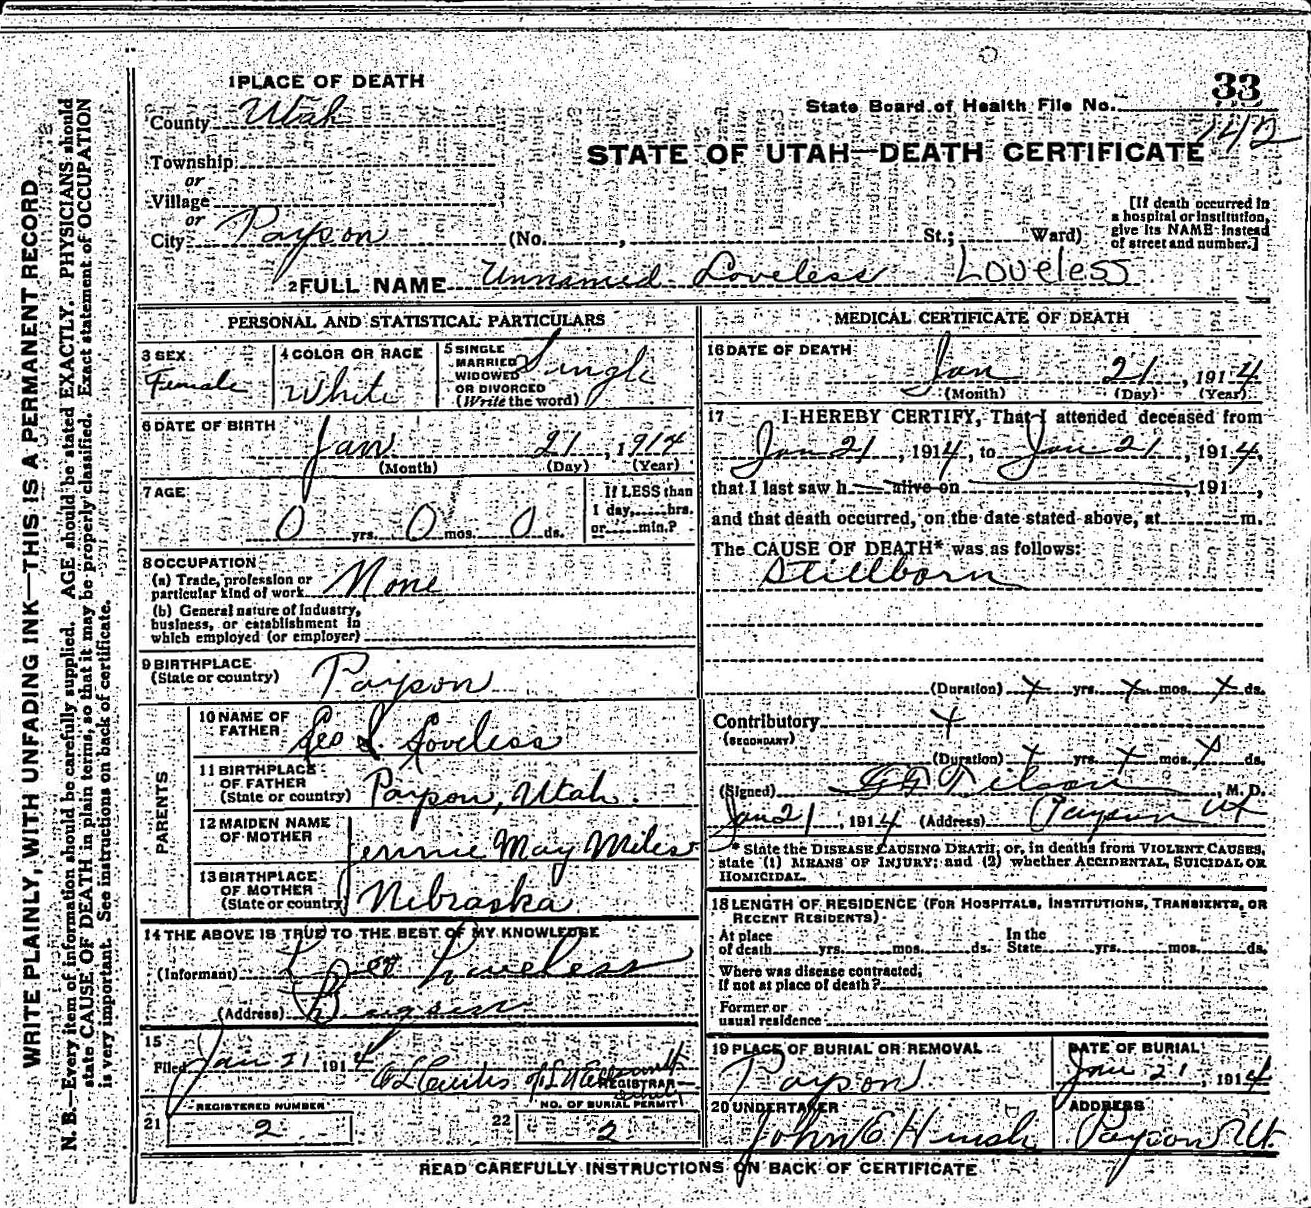 33
1 PLACE OF DEATH
State Board of Health File No.
142
County Utah
STATE OF UTAH—DEATH CERTIFICATE
Township
or
Village
or
City Payson (No. , St.; Ward)
[If death occurred in a hospital or institution, give its NAME instead of street and number.]
2 FULL NAME Unnamed Loveless Loveless
PERSONAL AND STATISTICAL PARTICULARS
3 SEX Female
4 COLOR OR RACE White
5 SINGLE MARRIED WIDOWED OR DIVORCED (Write the word) Single
6 DATE OF BIRTH
Jan 21, 1914
(Month) (Day) (Year)
7 AGE
0 yrs. 0 mos. 0 ds.
If LESS than
1 day, hrs.
or min.?
8 OCCUPATION
(a) Trade, profession or
particular kind of work None
(b) General nature of industry,
business, or establishment in
which employed (or employer)
9 BIRTHPLACE
(State or country) Payson
PARENTS
10 NAME OF
FATHER Geo S. Loveless
11 BIRTHPLACE
OF FATHER
(State or country) Payson, Utah.
12 MAIDEN NAME
OF MOTHER Jennie May Miles
13 BIRTHPLACE
OF MOTHER
(State or country) Nebraska
14 THE ABOVE IS TRUE TO THE BEST OF MY KNOWLEDGE
(Informant) Loveless
(Address)
15
Filed Jan 21 1914
REGISTRAR
REGISTERED NUMBER
21 2
NO. OF BURIAL PERMIT
22 2
MEDICAL CERTIFICATE OF DEATH
16 DATE OF DEATH
Jan 21, 1914
(Month) (Day) (Year)
17 I HEREBY CERTIFY, That I attended deceased from
Jan 21, 1914, to Jan 21, 1914,
that I last saw h alive on , 191 ,
and that death occurred, on the date stated above, at m.
The CAUSE OF DEATH* was as follows:
Stillborn
(Duration) x yrs. x mos. x ds.
Contributory x
(SECONDARY)
(Duration) x yrs. x mos. x ds.
(Signed) , M. D.
Jan 21, 1914 (Address) Payson Ut
* State the DISEASE CAUSING DEATH, or, in deaths from VIOLENT CAUSES,
state (1) MEANS OF INJURY; and (2) whether ACCIDENTAL, SUICIDAL OR
HOMICIDAL.
18 LENGTH OF RESIDENCE (FOR HOSPITALS, INSTITUTIONS, TRANSIENTS, OR
RECENT RESIDENTS)
At place
of death yrs. mos. ds.
In the
State yrs. mos. ds.
Where was disease contracted,
if not at place of death?
Former or
usual residence
19 PLACE OF BURIAL OR REMOVAL
Payson
DATE OF BURIAL
Jan 21, 1914
20 UNDERTAKER
John E Huish
ADDRESS
Payson Ut
READ CAREFULLY INSTRUCTIONS ON BACK OF CERTIFICATE
WRITE PLAINLY, WITH UNFADING INK—THIS IS A PERMANENT RECORD
N. B.—Every item of information should be carefully supplied. AGE should be stated EXACTLY. PHYSICIANS should
state CAUSE OF DEATH in plain terms, so that it may be properly classified. Exact statement of OCCUPATION
is very important. See instructions on back of certificate.